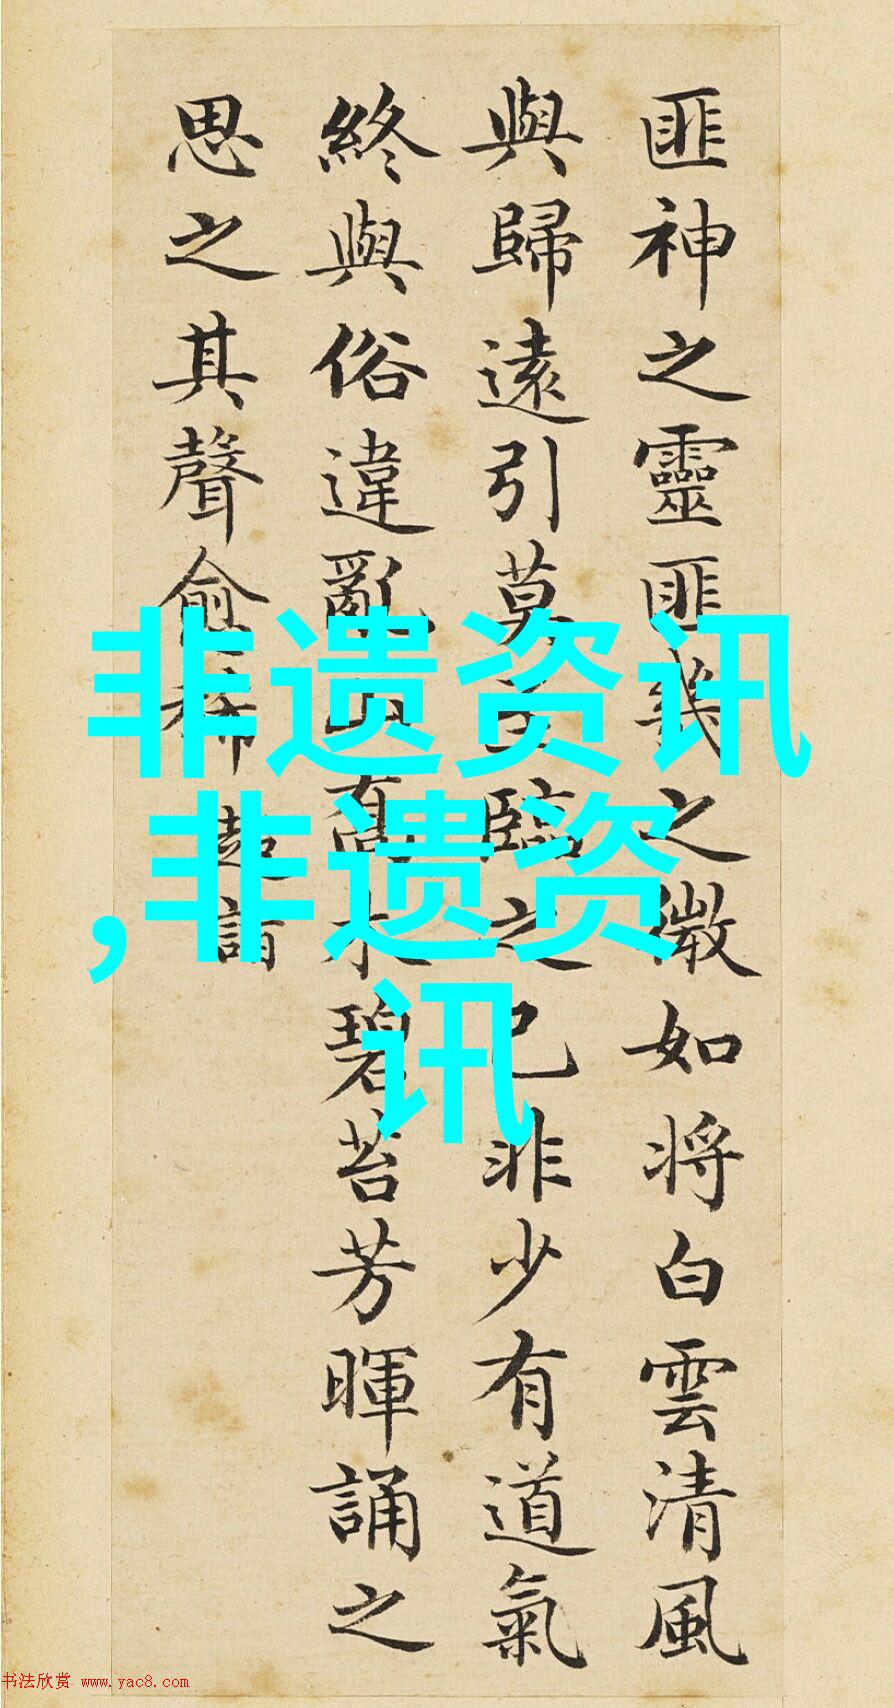 匪神之靈匪幾之微如将白雲清風
與歸遠引莫至臨之已非少有道氣
終與俗違亂山喬木碧苔芳暉誦之
思之其聲愈希超詣
非遗资讯
,非遗资
讯
书法欣赏 www.yac8.com